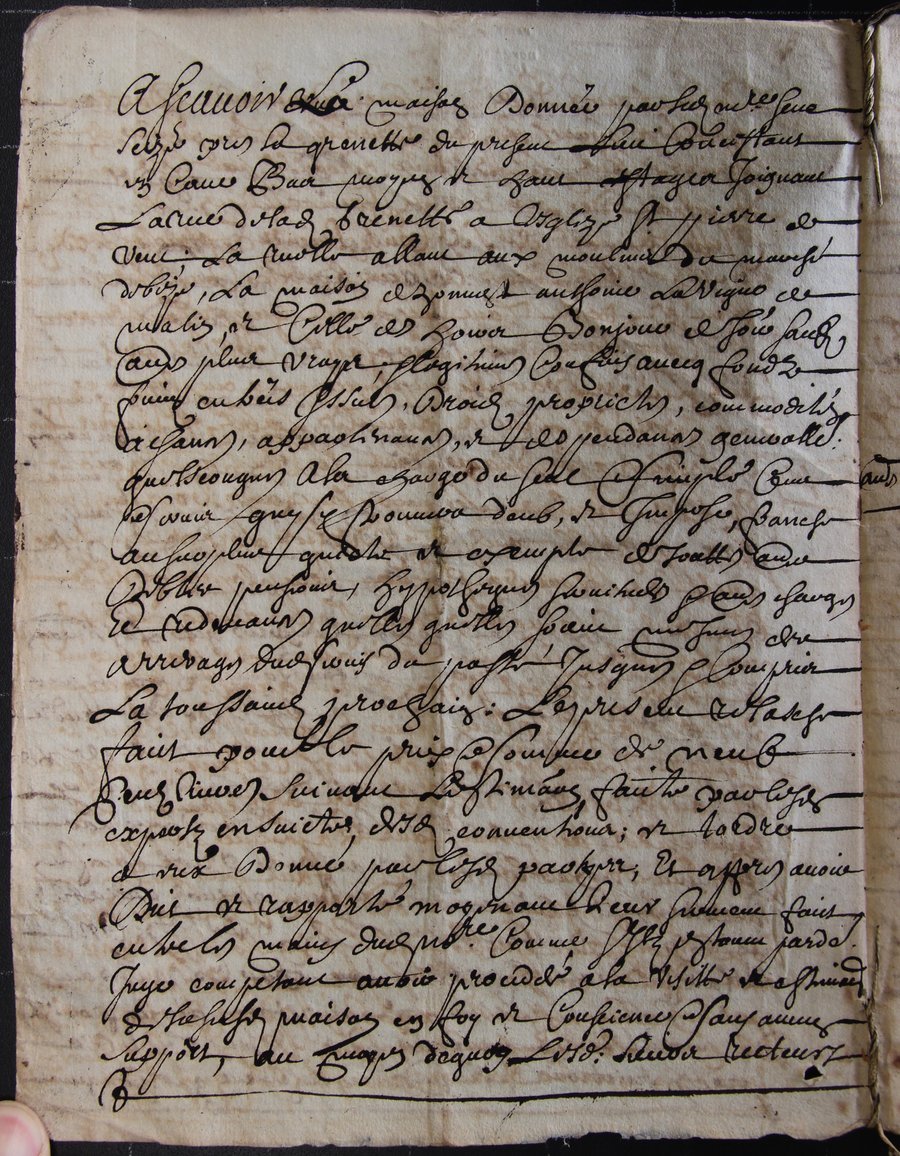 A scavoir une maison Donnée par led. mre. Gene
seize pres la grenette du present lieu Consistant
en Cave Bas moyen et haut estages Joignant
La rue de lad. Grenette a L'eglize St. pierre de
vent. La ruelle allant aux moulins du marché
de bize, La maison d'honneste anthoine La vigne de
matin, et Celle de
autres plus vrays, et legitimes Confins avecq fondz
entrées Issues, Droictz, proprietés, commodités
appartenances, et dependances generalle.
quelsconques A la charge du seul et simple Cens aud.
se trouvera deub, et Imposé, franche
au surplus quicte et exempte de toutes autres
Debtes pensions, hyppotheques servitudes et autres charges
Et redevances quelles quelles soient mesmes des
arrerages dud. servis du passé Jusques et Comprins
La toussainct prochain: Le present relasche
faict pour le prix et somme de neuf
Centz livres suivant L'estimaon. faicte par lesd.
expertz ensuicte desd. conventions; et l'ordre
a eux Donné par lesd. parties, Et appres avoir
Dict et rapporté moyenant Leur serment faict
entre les mains dud. nore. Comme sy Ilz estoient pardt.
Juge competant avoir procédé a la visitte et estimaon.
de lasusd. maison en foy et Conscience et sans aucung
support, au moyen dequoy Lesd. sieurs recteurs